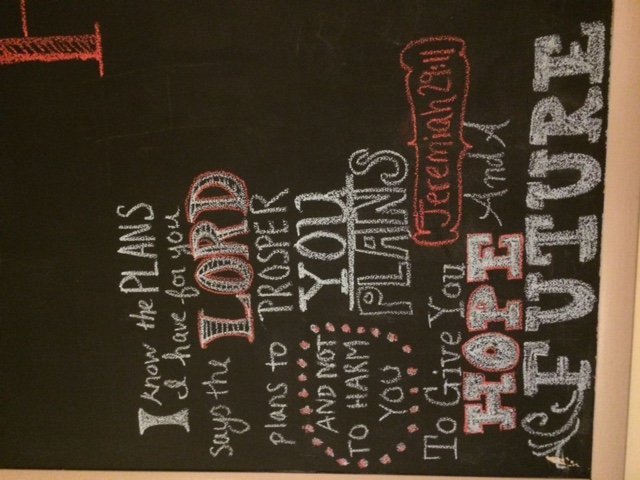 I know the PLANS
I have for you
says the LORD
plans to PROSPER
YOU
AND NOT
TO HARM
YOU
PLANS
Jeremiah 29:11
To Give You
HOPE And A
FUTURE